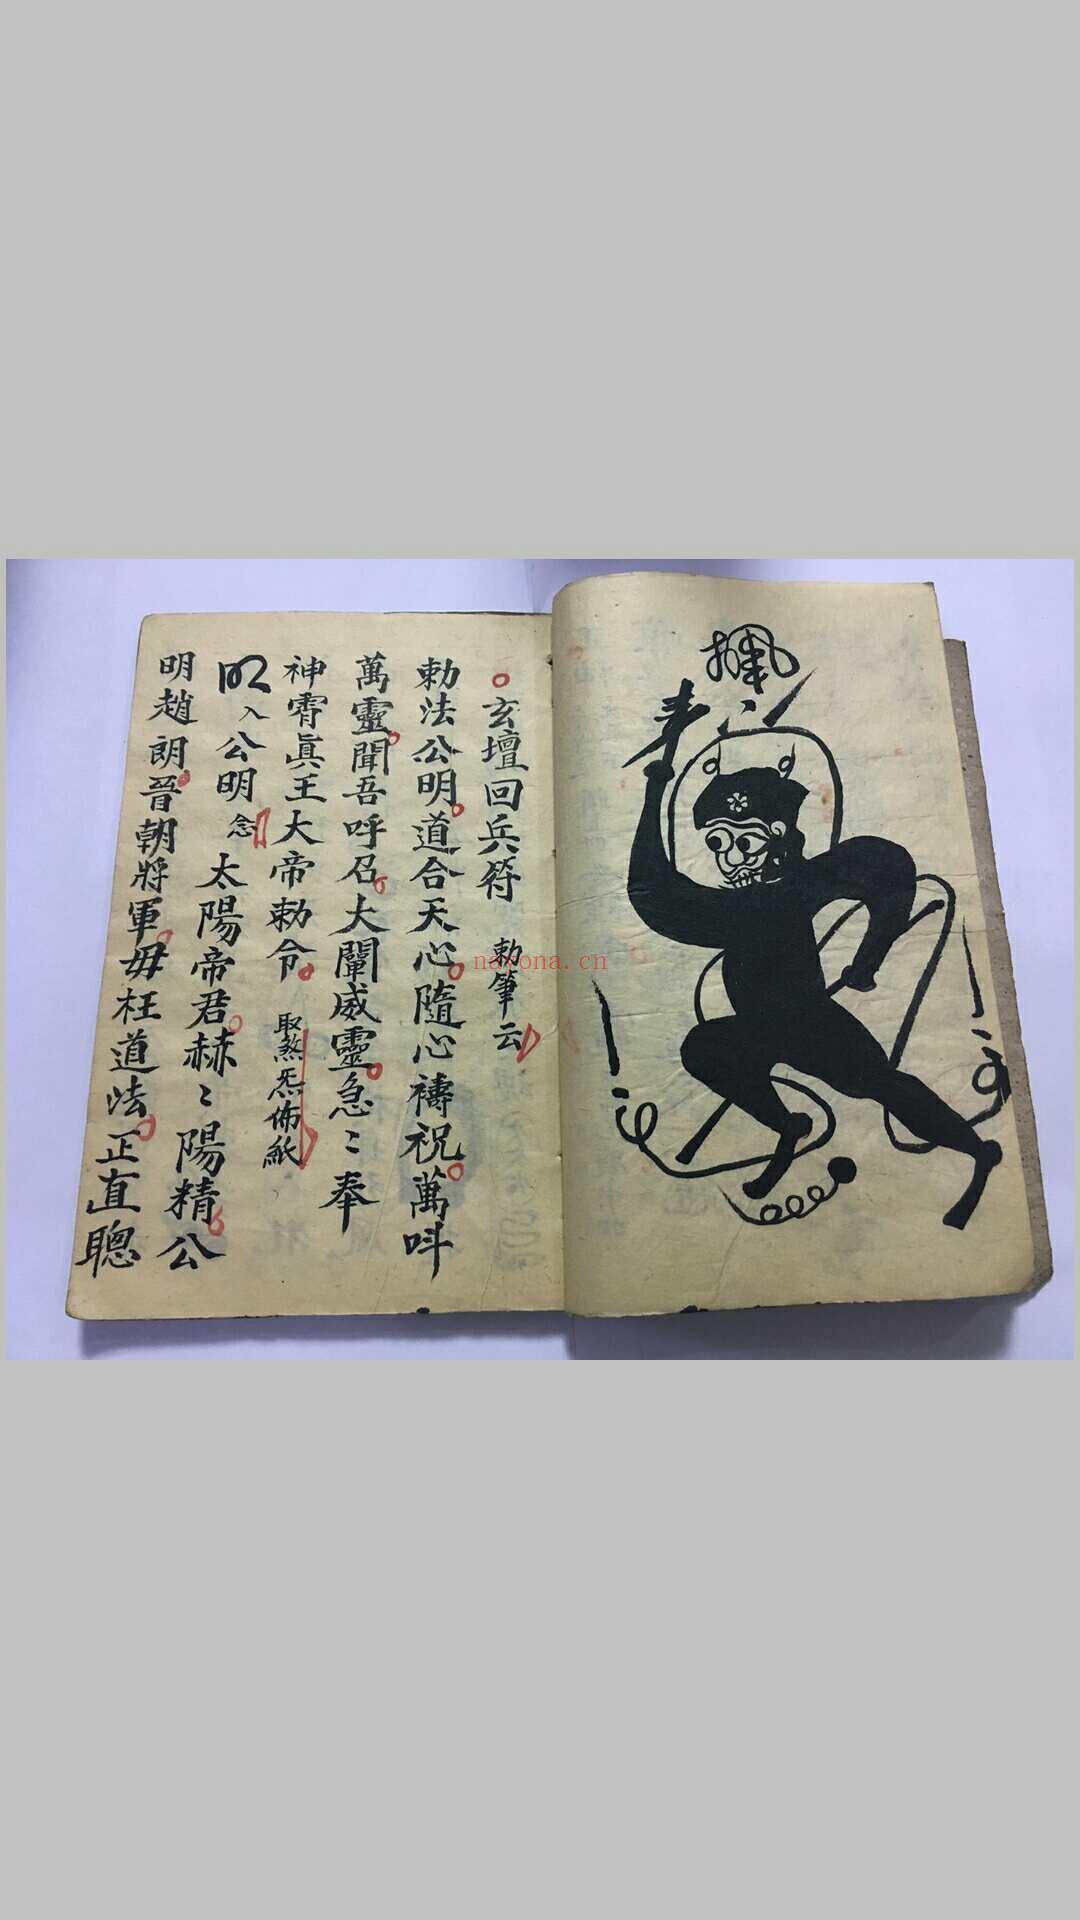 玄壇回兵符 勅筆云
勅法公明道合天心隨心禱祝萬呌
萬靈聞吾呼召大闡威靈急〻奉
神霄眞王大帝勅令 取煞炁佈紙
入公明念 太陽帝君赫〻陽精公
明趙朗晉朝將軍毋枉道法正直聰
navona.cn